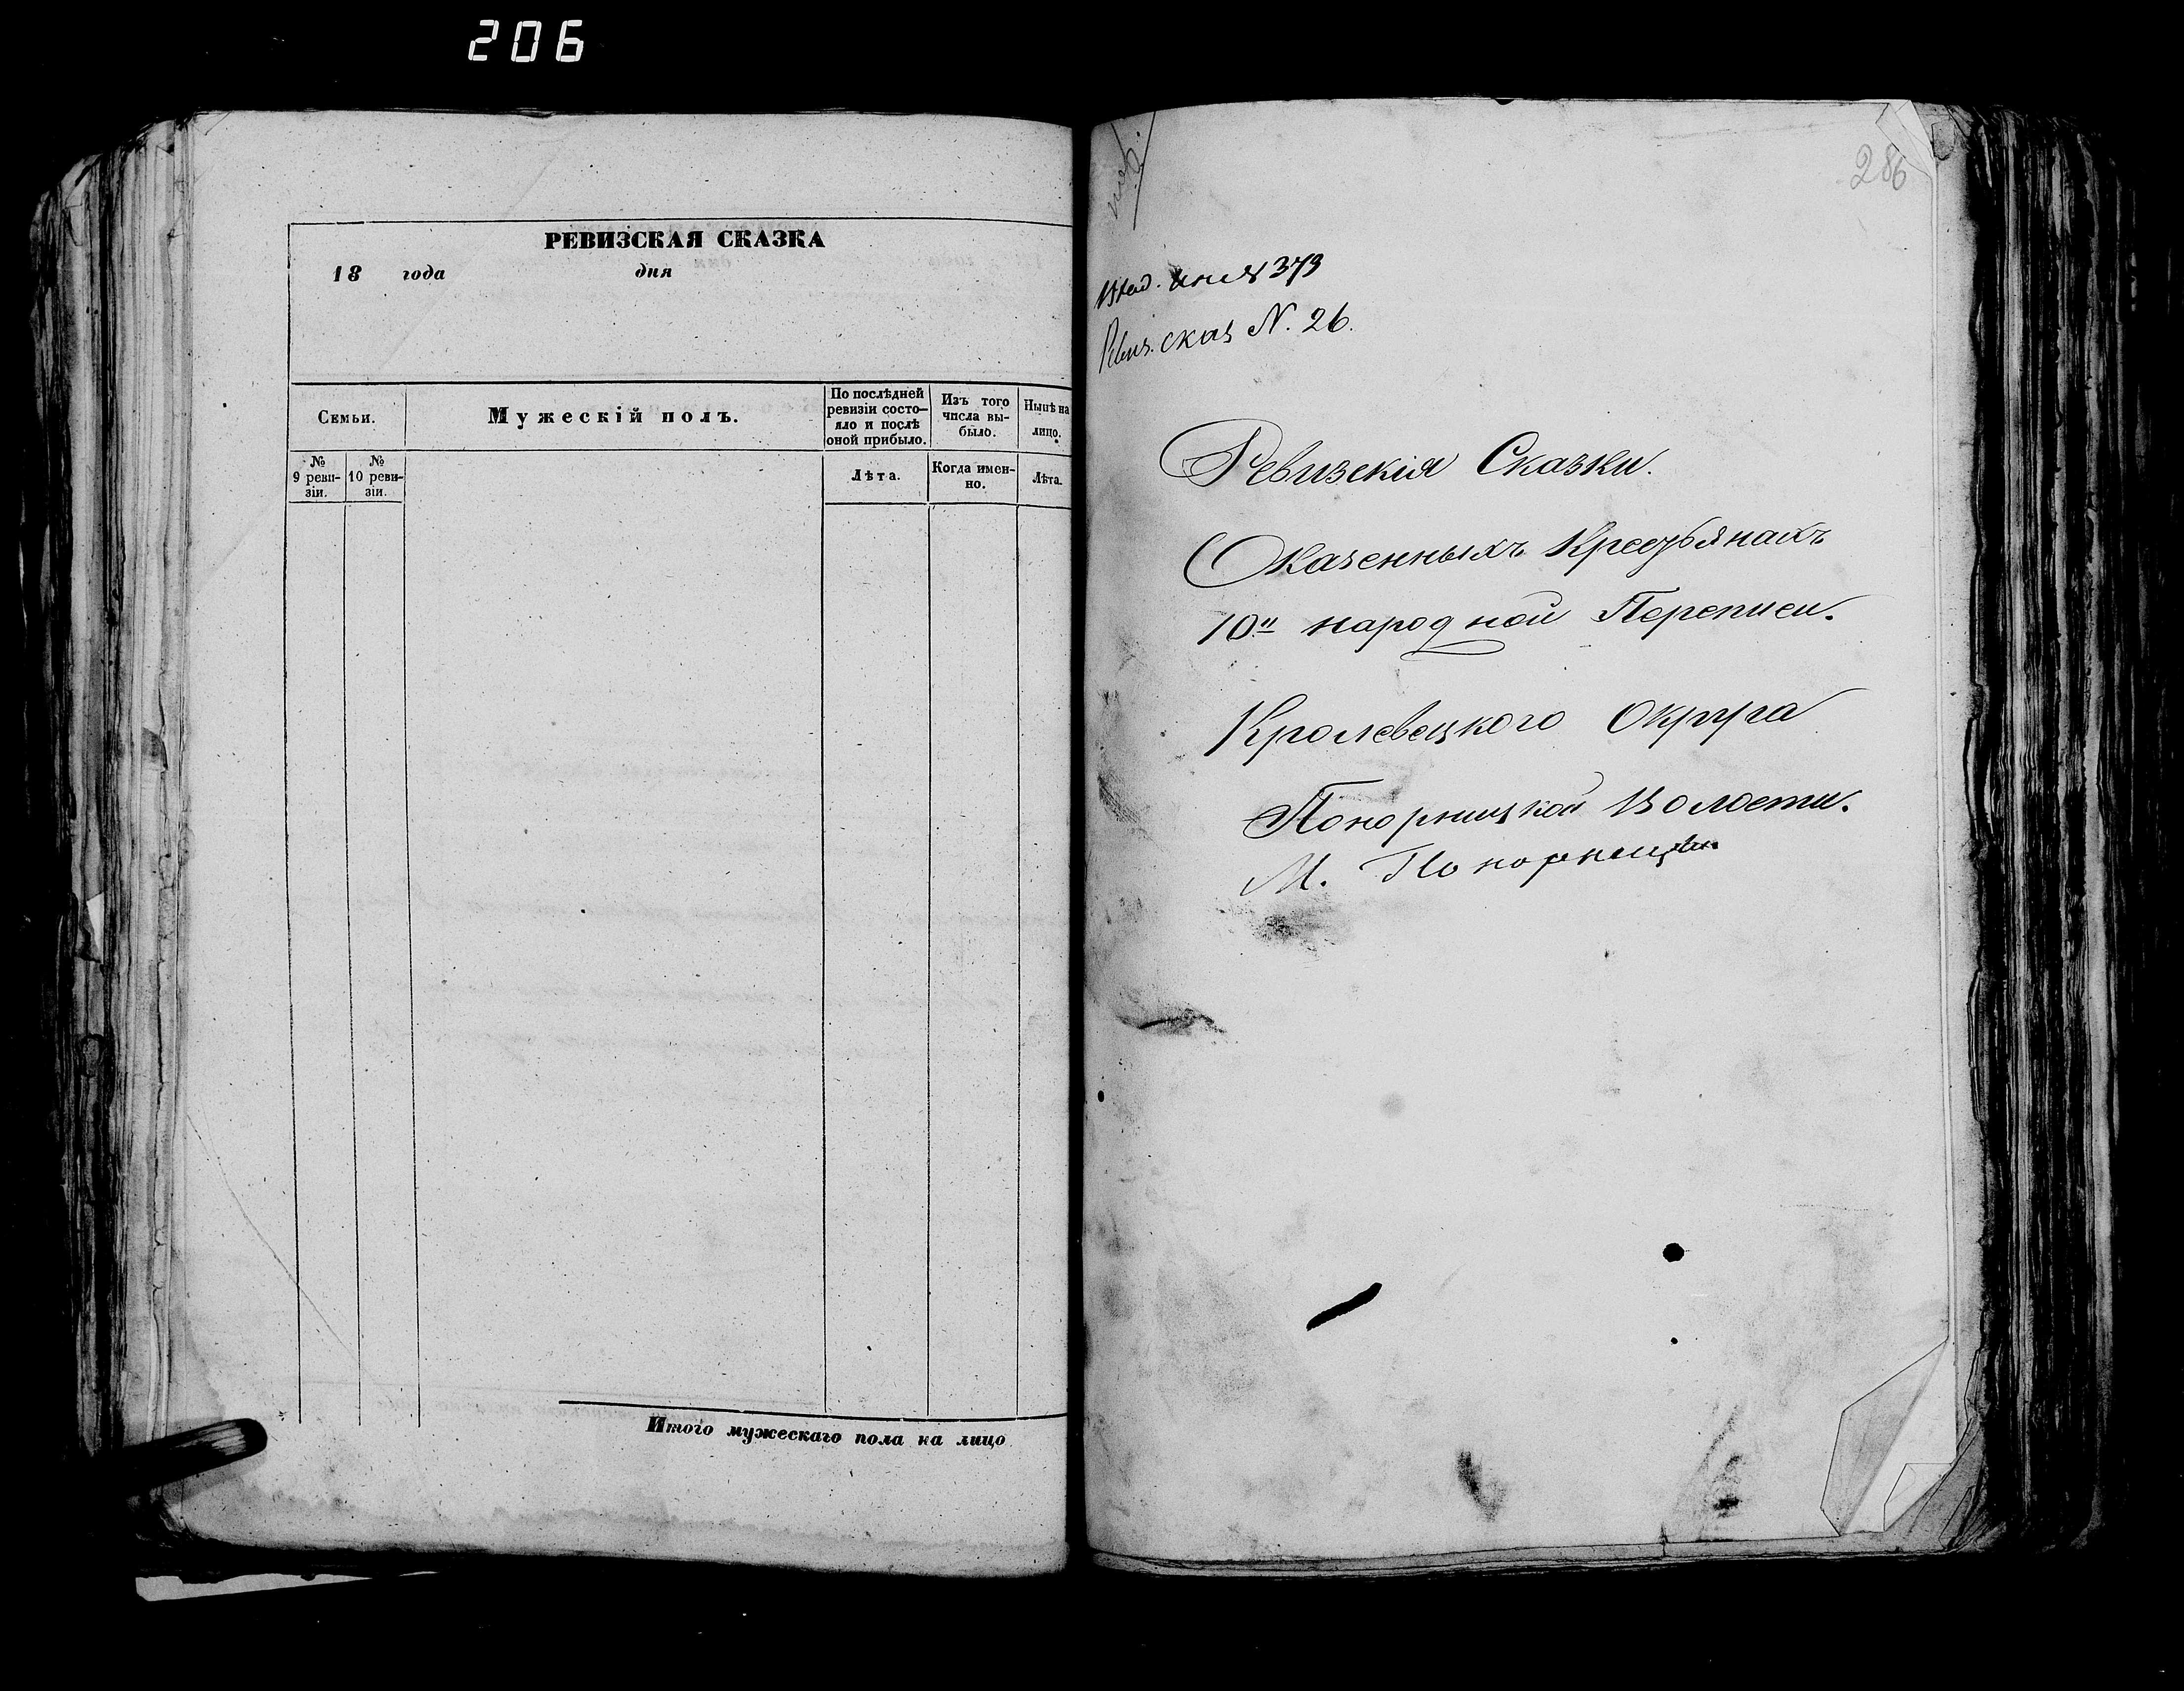 206
РЕВИЗСКАЯ СКАЗКА
18 года дня
Семьи.
Мужескій полъ.
По послѣдней ревизіи состо-
яло и послѣ оной прибыло.
Изъ того числа вы-
было.
Нынѣ на лицо.
№ 9 реви-
зіи.
№ 10 реви-
зіи.
Лѣта.
Когда имен-
но.
Лѣта.
Итого мужескаго пола на лицо
286
373
сказ N. 26.
Ревизскія Сказки.
О казенныхъ Крестьянахъ
10й народной Переписи.
Кролевецкого Округа
Понорницкой Волости.
М. Понорницы